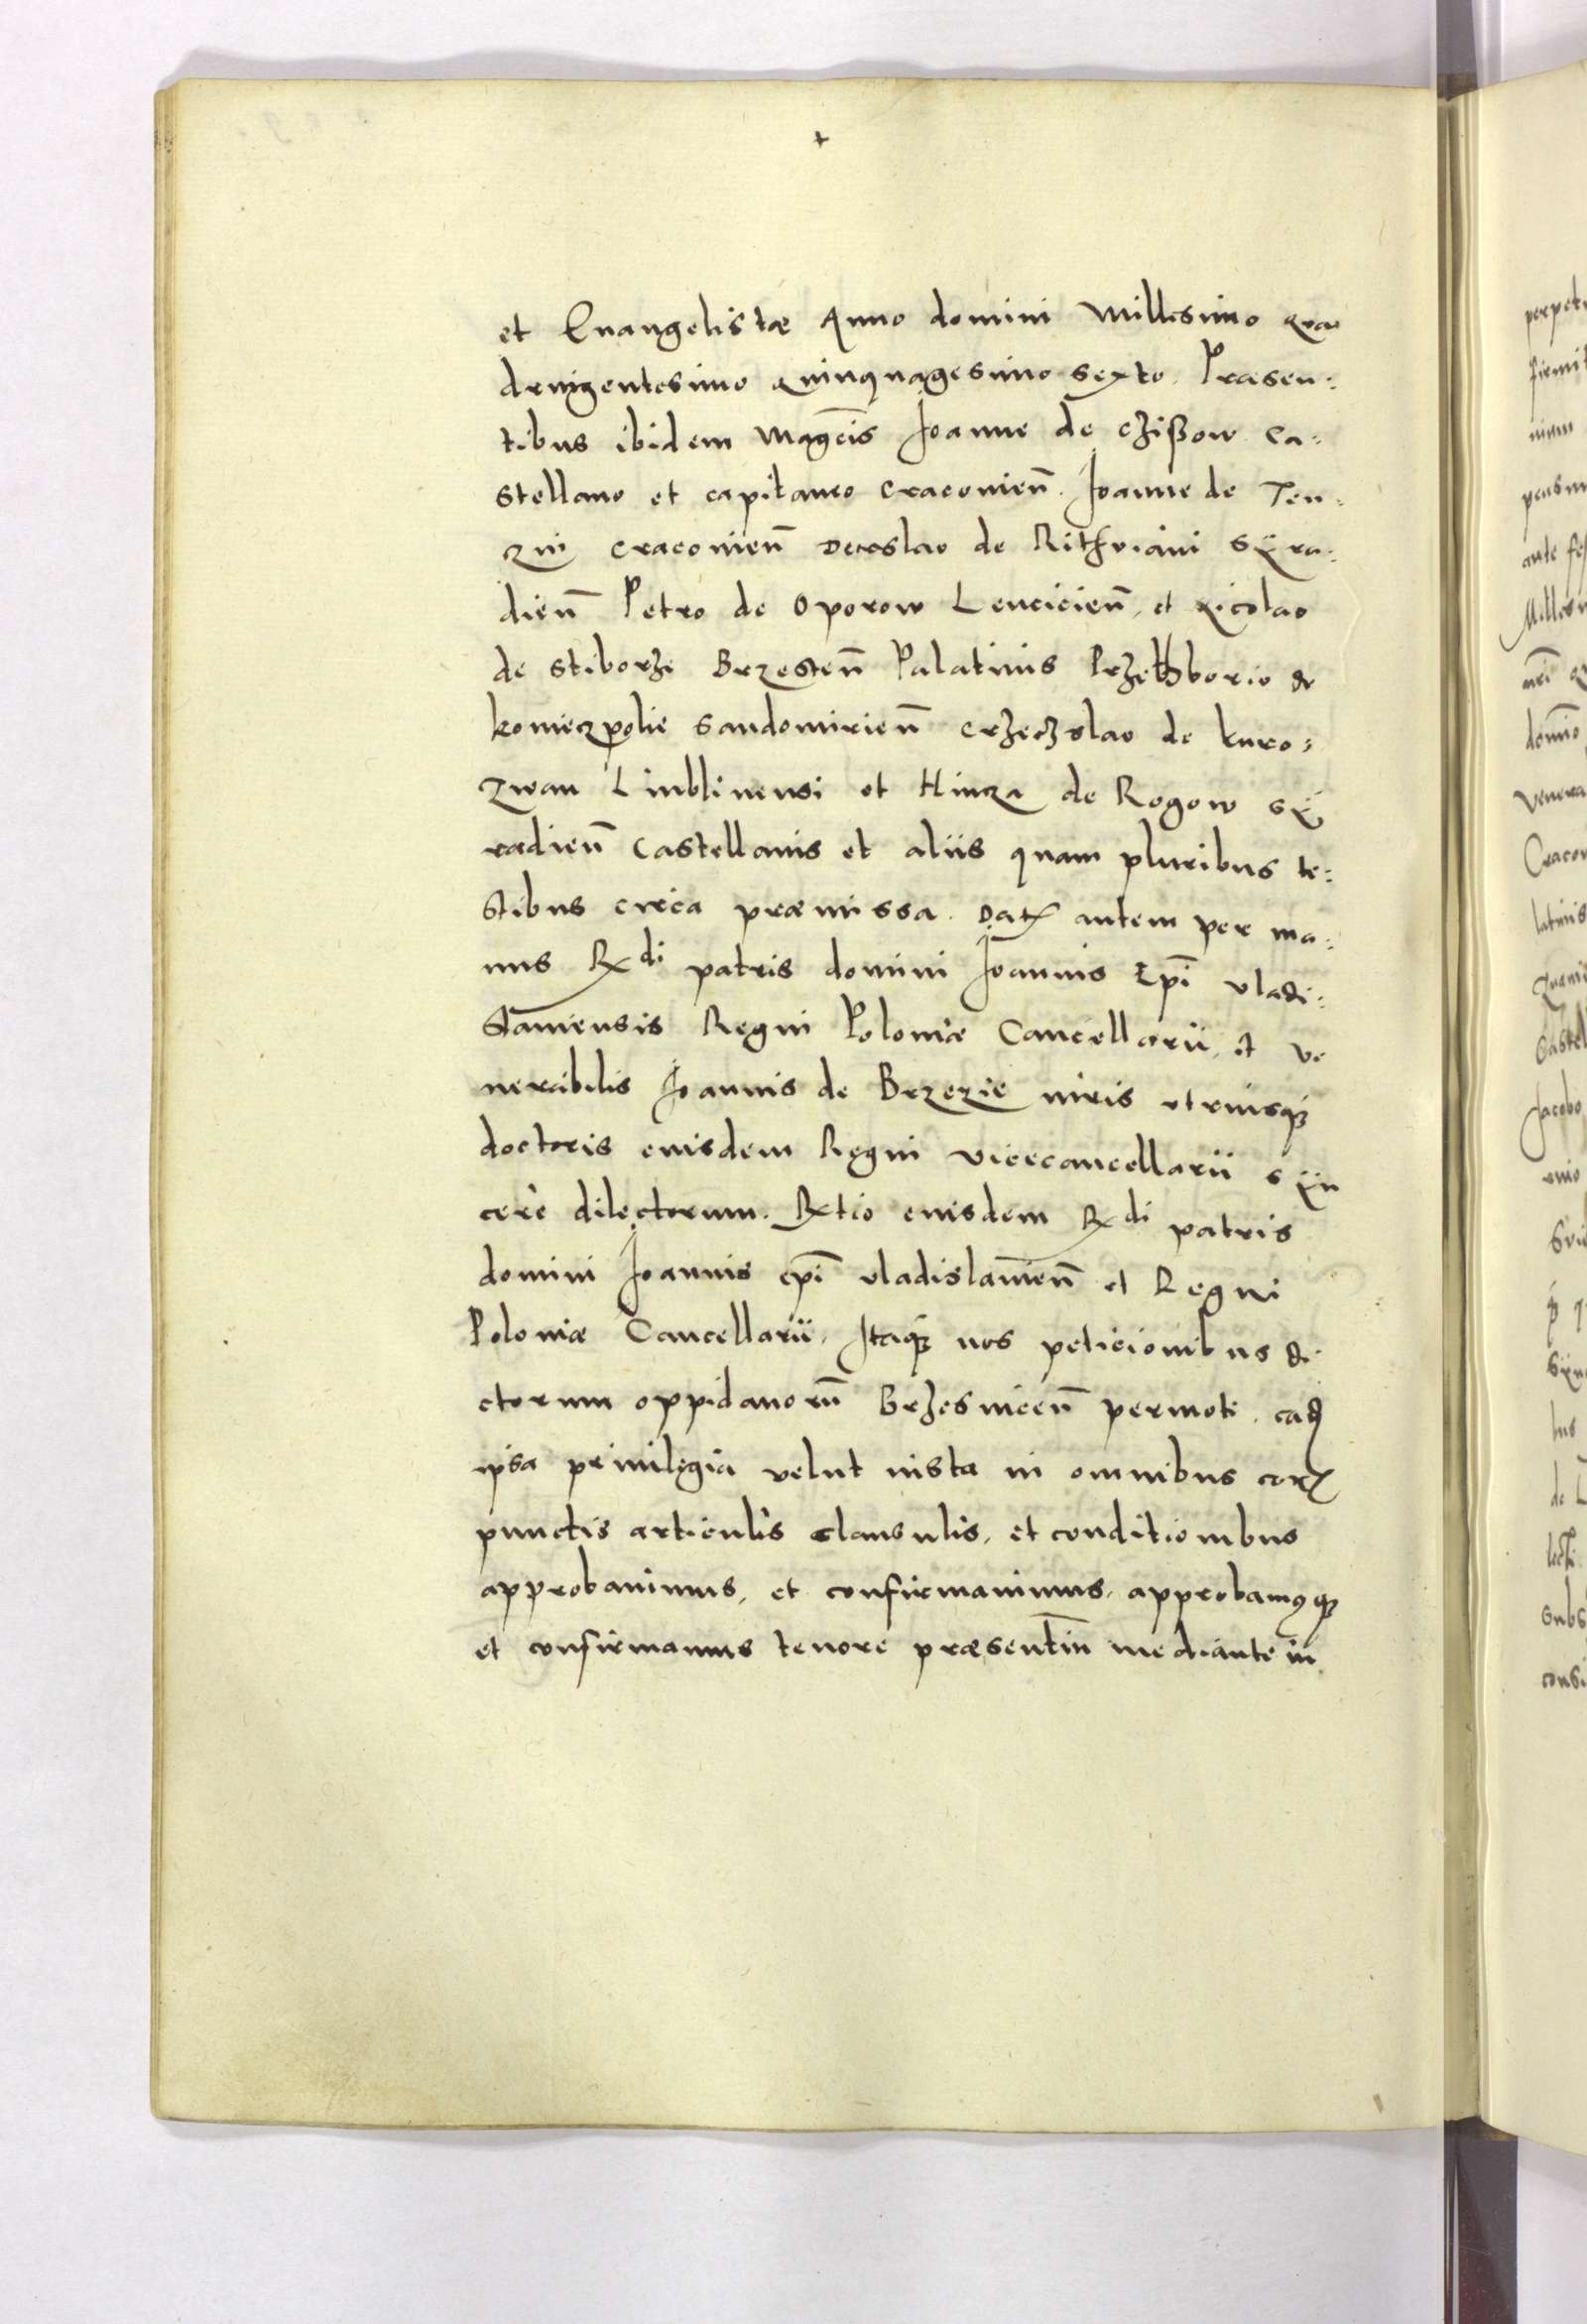 +
et Euangelistæ Anno domini Millesimo qua
dringentesimo quinquagesimo sexto. Præsen:
tibus ibidem Magcis Joanne de Cziszow Ca:
stellano et capitaneo Cracovien̄. Joanne de Ten:
zin Cracovien̄ Derslao de Rithviani Syra:
dien̄ Petro de Oporow Lencicien̄, et Nicolao
de Stiborzi Brzesten̄ Palatinis Przedborio de
koniecpolie Sandomirien̄ Crzeczslao de kuro:
zwan Linblinensi et Hincza de Rogow Sÿ
radien̄ Castellanis et aliis quam pluribus te:
stibus circa præmissa. Datʒ autem per ma:
nus Rdi patris domini Joannis Epī vladi:
slaviensis Regni Poloniæ Cancellarii, et ve
nerabilis Joannis de Brzezie iuris utriusqꝫ
doctoris eiusdem Regni vicecancellarii sÿn
cerè dilectorum. Rtio eiusdem Rdi patris
domini Joannis epī vladislavien̄ et Regni
Poloniæ Cancellarii. Itaqꝫ nos peticionibus di
ctorum oppidanorū Brzesnicen̄ permoti. eadʒ
ipsa privilegia velut iusta in omnibus eorʒ
punctis articulis clausulis, et conditionibus
approbavimus, et confirmavimus, approbamusqꝫ
et confirmamus tenore præsentiū mediante in